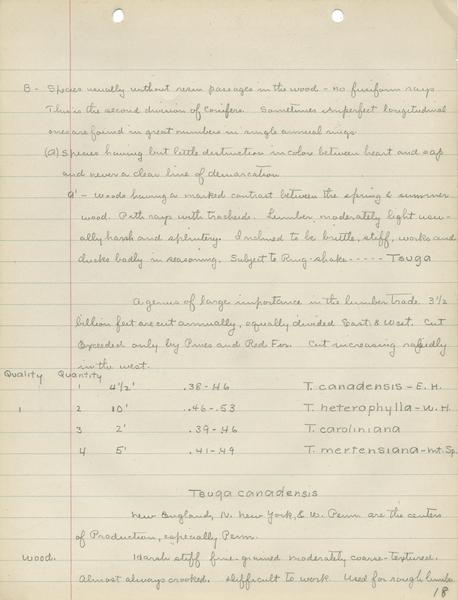 B - Species usually without resin passages in the wood - no fusiform rays
This is the second division of Conifers. Sometimes imperfect longitudinal
ones are found in great numbers in single annual rings
(a) Species having but little distinction in color between heart and sap
and never a clear line of demarcation
a' - Woods having a marked contrast between the spring & summer
wood. Pith rays with tracheids. Lumber moderately light usu-
ally harsh and splintery. Inclined to be brittle, stiff, works and
checks badly in seasoning. Subject to Ring-shake ----- Tsuga
A genus of large importance in the lumber trade. 3 1/2
billion feet are cut annually, equally divided East & West. Cut
Exceeded only by Pines and Red Fir. Cut increasing rapidly
in the west.
Quality Quantity
1 4 1/2' .38-.46 T. canadensis - E. H.
1 2 10' .46-.53 T. heterophylla - W. H.
3 2' .39-.46 T. caroliniana
4 5' .41-.49 T. mertensiana - Mt. Sp.
Tsuga canadensis
New England, N. New York, & W. Penn are the centers
of Production, especially Penn.
Wood. Harsh stiff fine-grained moderately coarse-textured.
Almost always crooked. difficult to work. Used for rough lumber
18